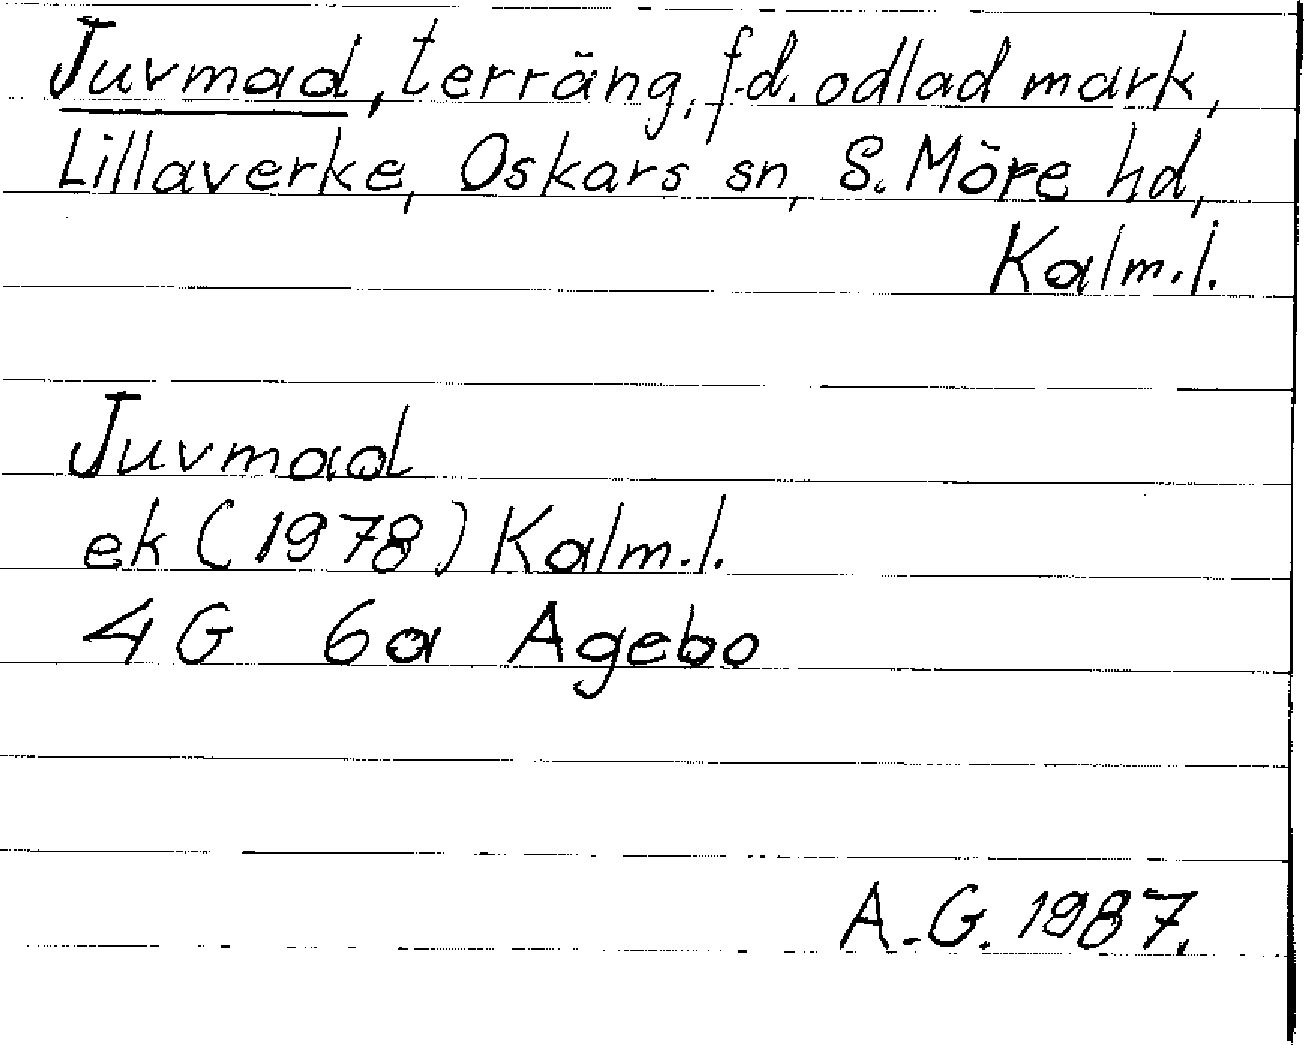 Juvmad, terräng, f.d. odlad mark,
Lillaverke, Oskars sn, S. Möre hd,
Kalm.l.
Juvmad
ek (1978) Kalm.l.
4G 6a Agebo
A.G. 1987.